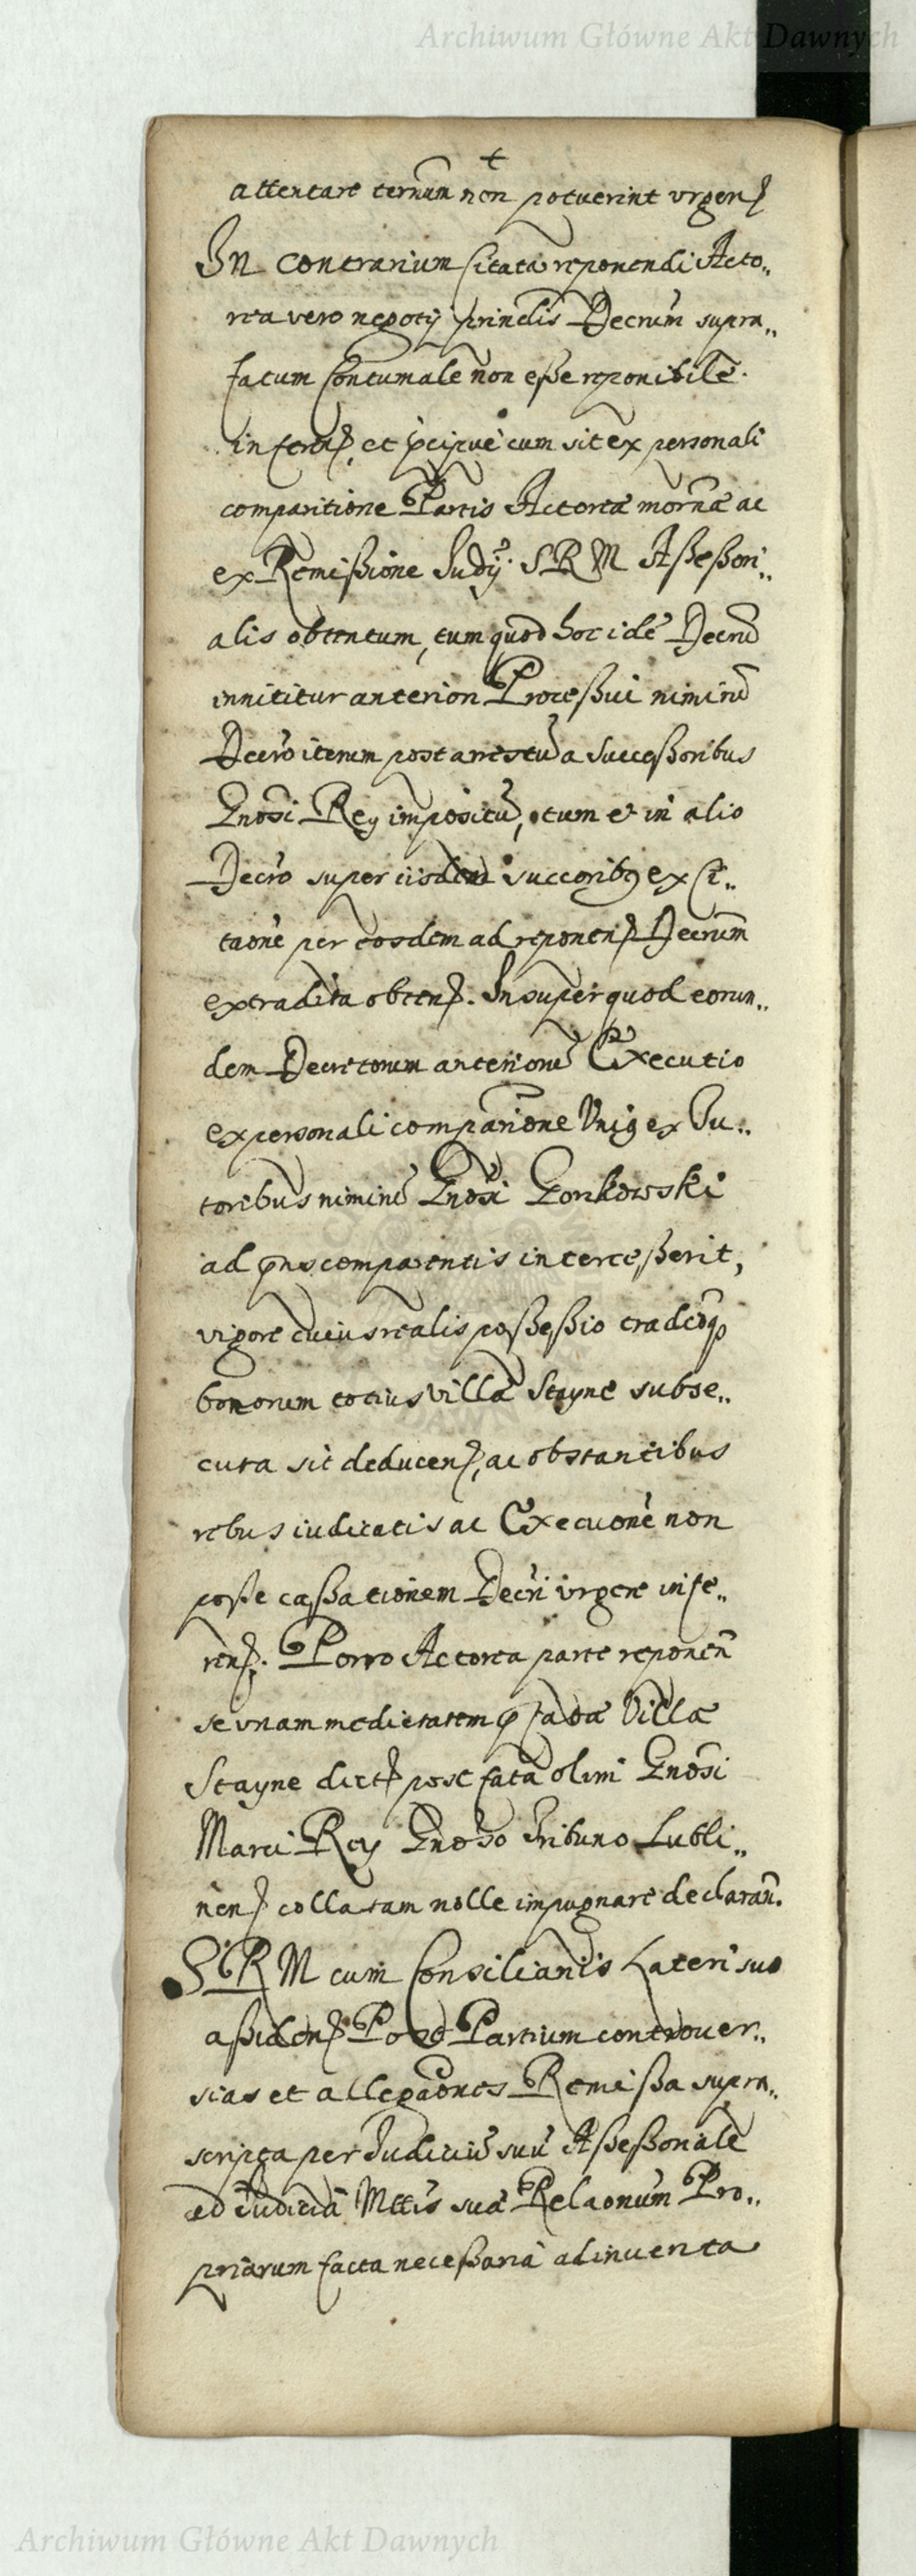 Archiwum Główne Akt Dawnych
+
attentare ternum non potuerint urgen
In contrarium Citata reponendi Acto„
rea vero negotij prindis Decrum supra„
factum Contumale non eße reponibile.
inferen, et pcipue cum sit ex personali
comparitione Partis Actorea mornæ ac
ex Remißione Judij. S R M Aßeßori„
alis obtentum, tum quod hoc idē Decru
innititur anteriori Proceßui niminū
Decro iterum post arrestū a Succeßoribus
Gnosi Rey impositū, tum et in alio
Decro super iisdem succoribg ex Ci„
taone per eosdem ad reponen Decrum
extradita obten. Insuper quod eorun„
dem Decretorum anteriorū Executio
ex personali comparione Unig ex Tu„
toribus niminū Gnosi Gorkowski
ad pns comparentis interceßerit,
vigore cuius realis poßeßio tradcoq
bonorum totius Villæ Stayne subse„
cuta sit deducen, ac obstantibus
rebus iudicatis ac Execuone non
poße caßationem Decri urgere infe„
ren. Porro Actorea parte reponen
se unam medietatem Villæ
Stayne dict post fata olim Gnosi
Marci Rey Gnoso Tribuno Lubli„
nen collatam nolle impugnare declaran.
S R M cum Consiliariis Lateri suo
aßiden Post Partium controuer„
sias et allegaones Remißa supra„
scripta per Judiciū suū Aßeßoriale
ad Judicia Mttis suæ Relaonum Pro„
priarum facta neceßaria adinuenta
Archiwum Główne Akt Dawnych